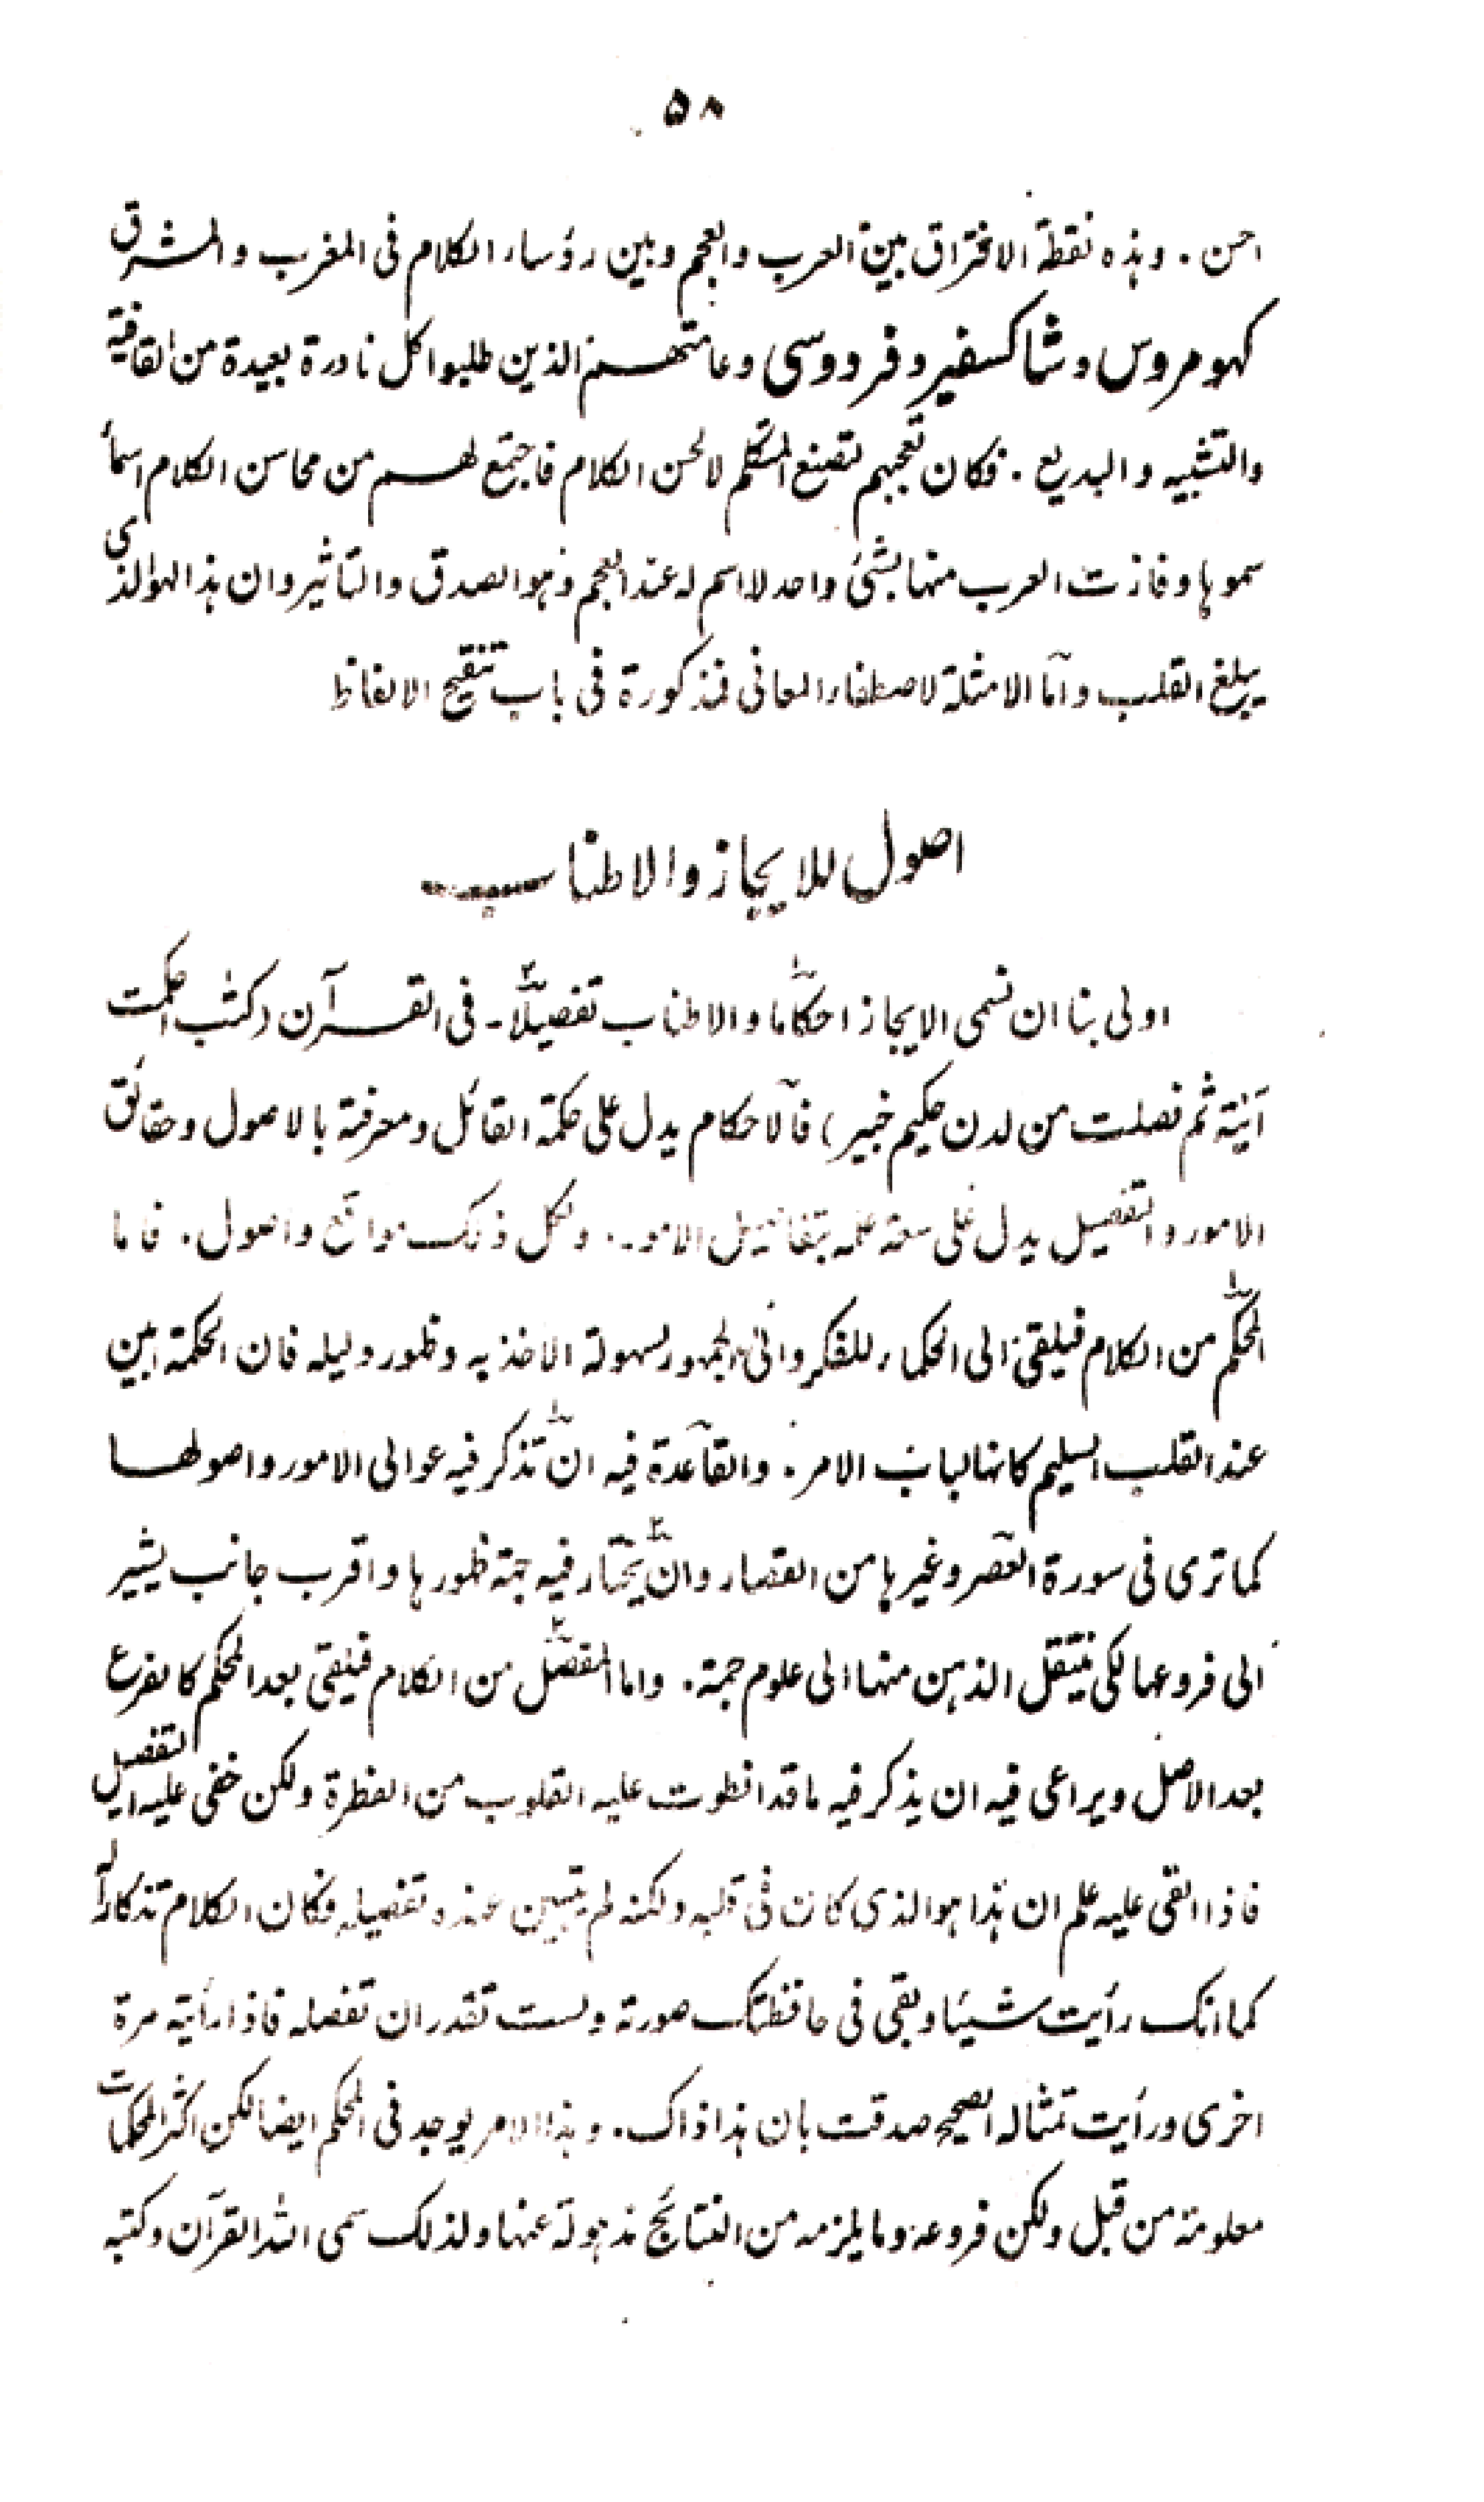 ۵۸
احسن. وهذه نقطة الافتراق بين العرب والعجم وبين رؤساء الكلام فى المغرب والمشرق
كهومروس وشاكسفير وفردوسى وعامتهم الذين طلبوا كل نادرة بعيدة من القافية
والتشبيه والبديع. فكان تعجبهم لتصنع المتكلم لا لحسن الكلام فاجتمع لهم من محاسن الكلام اسمأ
سموها وفازت العرب منها بشئ واحد لا اسم له عند العجم وهو الصدق والتاثير وان هذا لهو الذى
يبلغ القلب وآما الامثلة لاصطفاء المعانى فمذكورة فى باب تنقيح الالفاظ
اصول للايجاز والاطناب
اولى بنا ان نسمى الايجاز احكاما والاطناب تفصيلًا۔ فى القرآن (كتٰب احكمت
آيٰته ثم فصلت من لدن حكيم خبير) فالاحكام يدل على حكمة القائل ومعرفة بالاصول وحقائق
الامور والتفصيل يدل على سعة علمه بتفاصيل الامور. ولكل ذلك مواقع واصول. فاما
المحكم من الكلام فيلقى الى الحكماء للفكر والى الجمهور لسهولة الاخذ به وظهور دليله فان الحكمة ابين
عند القلب السليم كانها لباب الامر. والقاعدة فيه ان تذكر فيه عوالى الامور واصولها
كما ترى فى سورة العصر وغيرها من القصار وان يختار فيه جهة ظهورها واقرب جانب يشير
الى فروعها لكى ينتقل الذهن منها الى علوم جمة. واما المفصّل من الكلام فيلقى بعد المحكم كالفرع
بعد الاصل ويراعى فيه ان يذكر فيه ما قد انطوت عليه القلوب من الفطرة ولكن خفى عليه التفصيل
فاذا القى عليه علم ان هذا هو الذى كان فى قلبه ولكنه لم يتبين عنده تفصيله فكان الكلام تذكارا له
كما انك رأيت شيئا وبقى فى حافظتك صورته ولست تقدر ان تفصله فاذا رأيته مرة
اخرى ورأيت تمثاله الصحيح صدقت بان هذا ذاك. وهذا الامر يوجد فى المحكم ايضا لكن اكثر المحكمات
معلومة من قبل ولكن فروعه وما يلزمه من النتائج مذهولة عنها ولذلك سمى الله القرآن وكتبه